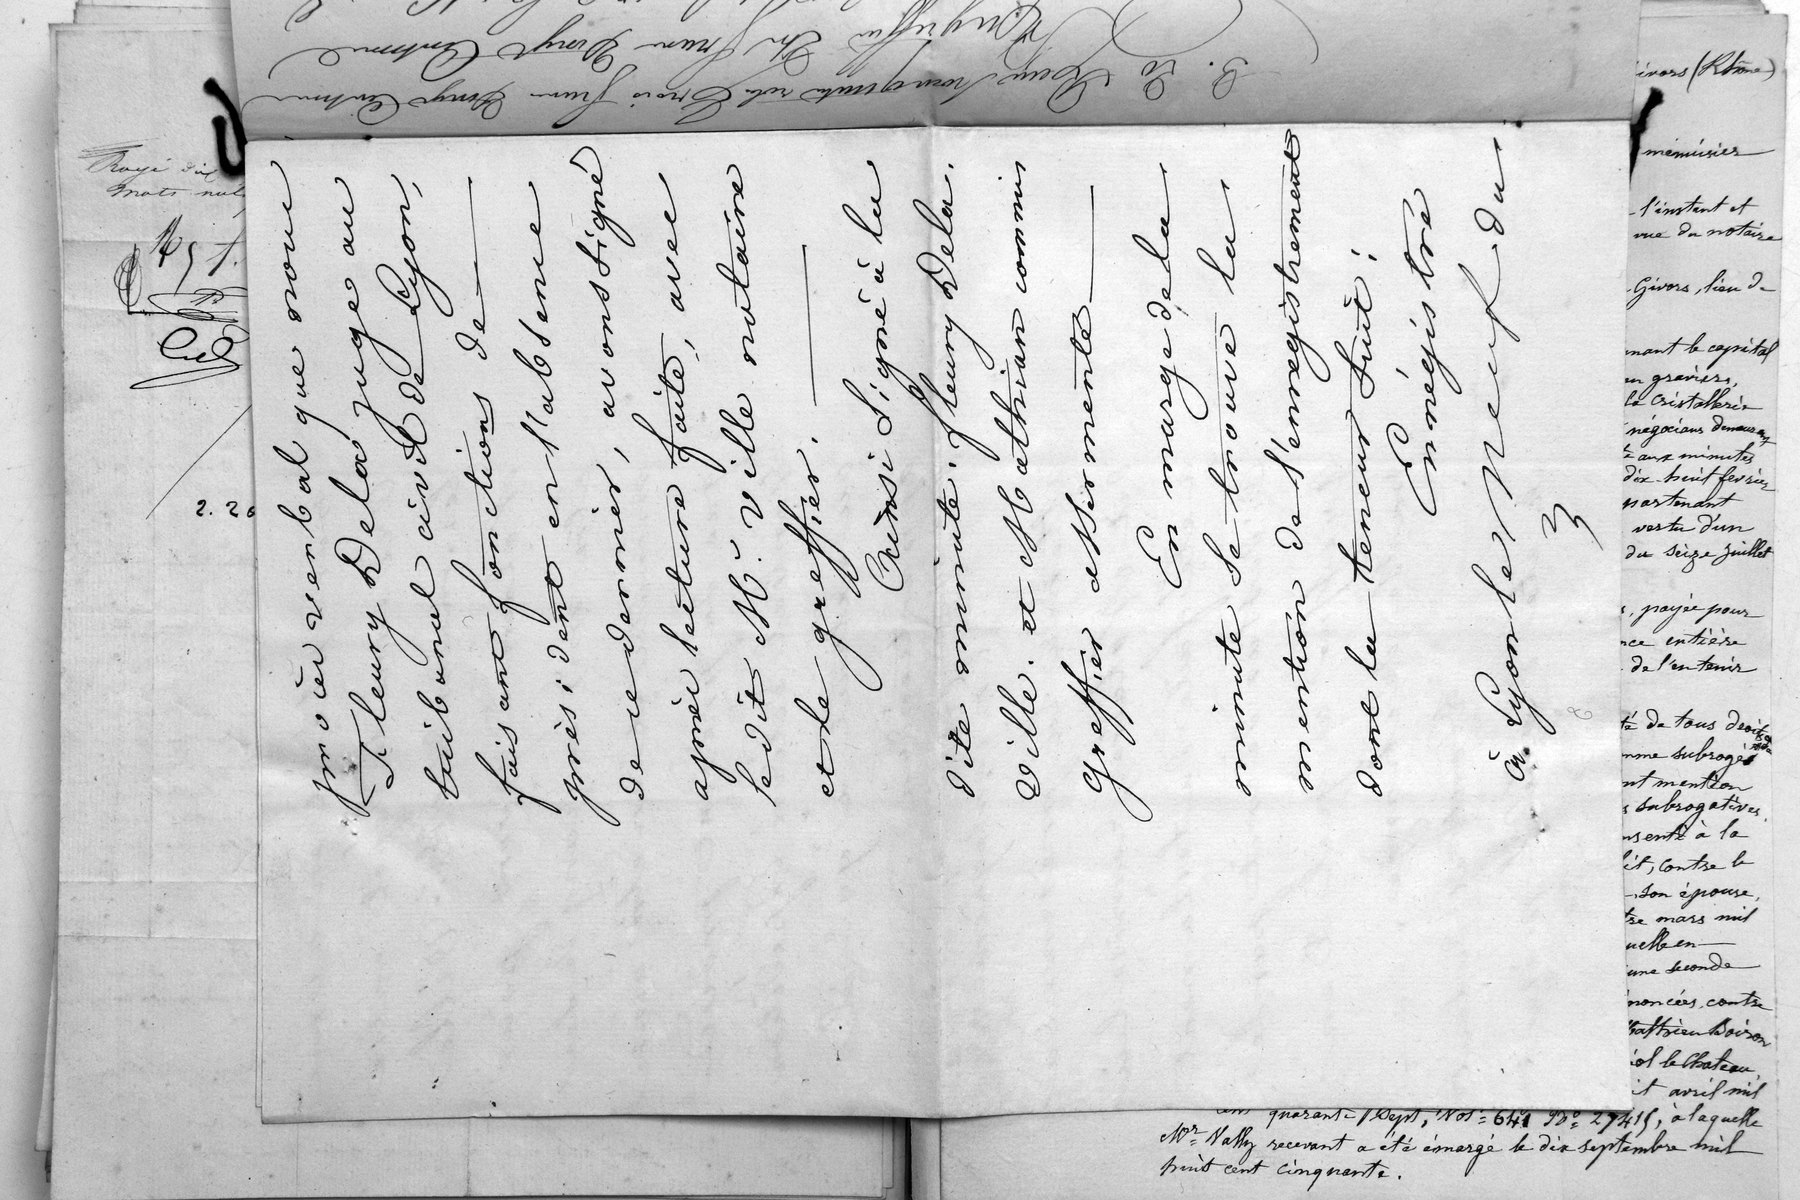 procès verbal que nous
Fleury Dela juge au
tribunal civil de Lyon,
faisant fonctions de
présidant en l'absence
de ce dernier, avons signé
après lecture faite, avec
ledit Me. Ville notaire
et le greffier.
Ainsi Signé à la
dite minute. fleury Dela.
Ville. et Mathian commis
greffier assermenté
En marge de la
minute se trouve la
mention de l'enregistrement
dont la teneur Suit;
Enrégistré
à Lyon le Neuf du
3
2
Rayé dix
mots nuls
2.20
D. 20
Deux Trois franc vingt Centimes
franc vingt Centimes
ivors (Rhône)
menuisier
l'instant et
vue du notaire
Givors, lieu de
nant le capital
en graviers,
la cristallerie
négocians demeurant
aux minutes
dix-huit février
partenant
vertu d'un
du seize juillet
, payée pour
nce entière
de l'en tenir
té de tous droits
mme subrogé
nt mention
s subrogatives,
nsenti à la
it, contre le
son épouse,
tre mars mil
uelle en
une seconde
noncées, contre
Matthieu Boiron
ol le Chateau,
it avril mil
cent quarante Sept, Vol. 641 No. 27415, à laquelle
Mr. Vally recevant a été émargé le dix septembre mil
huit cent cinquante.